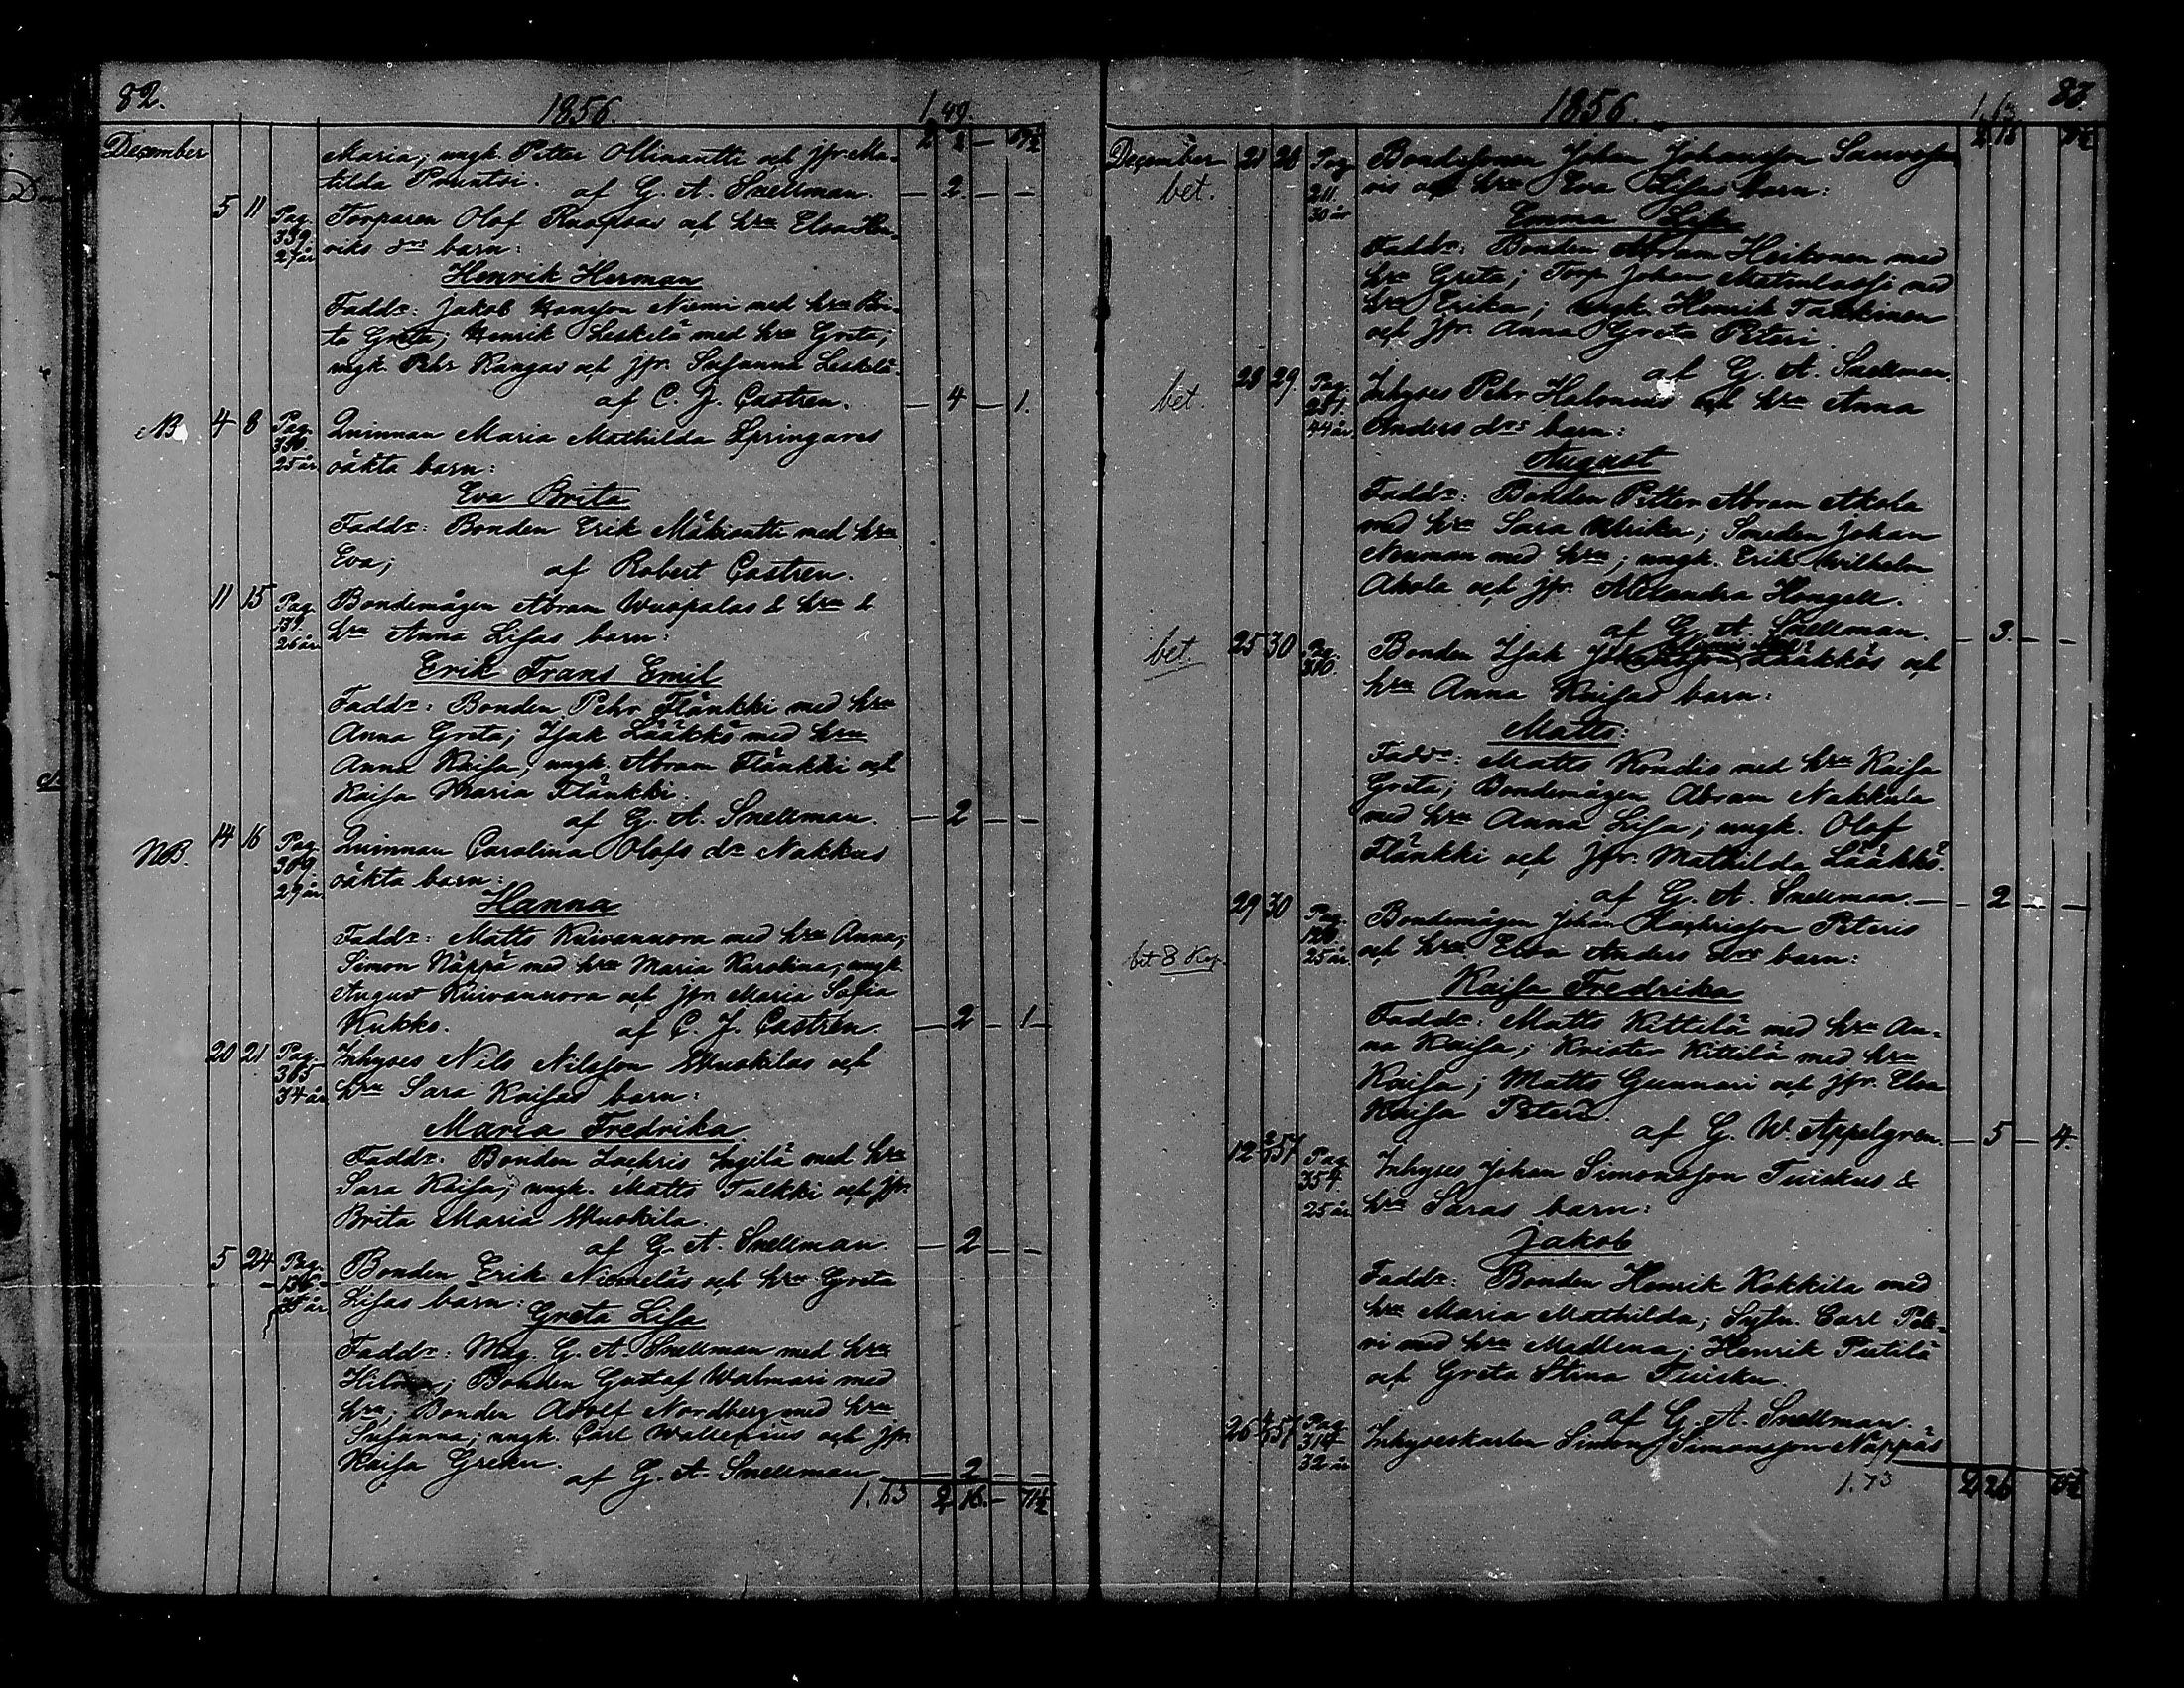 82.
1856.
1.49.
December
2 2 — 17½
Maria; ungk. Petter Ollinantti och jfr. Ma-
tilda Pountsi. af G. A. Snellman. — 2. — —
5 11 Pag. 339. 27 år Torparen Olof Ruopsas och hru Elsa Hen-
riks drs barn:
Henrik Herman
Faddr: Jakob Hansson Niemi med hru Bri-
ta Greta; Henrik Leskelä med hru Greta;
ungk. Pehr Kangas och jfr. Susanna Leskelä.
af C. J. Castren. — 4 — 1.
NB. 4 8 Pag. 390. 25 år Quinnan Maria Mathilda Springares
oäkta barn:
Eva Brita
Faddr: Bonden Erik Mäkiantti med hru
Eva; af Robert Castren.
11 15 Pag. 139. 26 år Bondemågen Abram Wuopalas & hru &
hru Anna Lisas barn:
Erik Frans Emil
Faddr: Bonden Pehr Flänkki med hru
Anna Greta; Isak Lääkkö med hru
Anna Kaisa, ungk. Abram Flänkki och
Kaisa Maria Flänkki.
af G. A. Snellman. — 2 — —
NB. 14 16 Pag. 389. 29 år Quinnan Carolina Olofs dr Nakkus
oäkta barn:
Hanna
Faddr: Matts Kuivannora med hru Anna;
Simon Näppä med hru Maria Karolina; ungk.
August Kuivannora och jfr. Maria Sofia
Kukko. af C. J. Castrén — 2 — 1 —
20 21 Pag. 365 34 år Inhyses Nils Nilsson Wuokilas och
hru Sara Kaisas barn:
Maria Fredrika
Faddr. Bonden Zachris Ingilä med hru
Sara Kaisa; ungk. Matts Tulkki och jfr.
Brita Maria Wuokila.
af G. A. Snellman. — 2 — —
5 24 Pag. 35 år Bonden Erik Niemeläs och hru Greta
Lisas barn:
Greta Lisa
Faddr: Mag. G. A. Snellman med hru
Hilma; Bonden Gustaf Walmari med
hru; Bonden Adolf Nordberg med hru
Susanna; ungk. Carl Wallenius och jfr.
Kaisa Greku. af G. A. Snellman — 2 — —
1.63 2 16. —
1856.
1.63
83.
December 21 28 Pag 211. 30 år Bondesonen Johan Johansson
och hru Eva Lisas barn:
bet.
Emma Lisa
Faddr: Bonden Abram Heikonen med
hru Greta; Torp. Johan Matinlassi med
hru Erika; ungk. Henrik Takkinen
och jfr. Anna Greta Peteri.
af G. A. Snellman.
bet. 28 29. Pag. 281. 44 år. Inhyses Pehr Halonens och hru Anna
Anders drs barn:
August
Faddr: Bonden Petter Abram Alkola
med hru Sara Ulrika; Smeden Johan
Neuman med hru; ungk. Erik Wilhelm
Akola och jfr. Alexandra Hongell.
af G. A. Snellman. — 3. — —
bet. 25 30 Pag. Bonden Isak Lääkkös och
hru Anna Kaisas barn:
Matts.
Faddr: Matts Kondio med hru Kaisa
Greta; Bondemågen Abram Nakkula
med hru Anna Lisa; ungk. Olof
Flänkki och jfr. Mathilda Lääkkö.
af G. A. Snellman. — 2 — —
29 30 Pag. 120. 25 år. Bondemågen Johan Zachrisson Peteris
bet 8 Kop. och hru Elsa Anders drs barn:
Kaisa Fredrika
Faddr: Matts Kittilä med hru An-
na Kaisa; Krister Kittilä med hru
Kaisa; Matts Gunnari och jfr. Elsa
Kaisa Peteri.
af G. W. Appelgren. — 5 — 4.
12 2/57 Pag 354. 25 år Inhyses Johan Simonsson Tuiskus &
hru Saras barn:
Jakob
Faddr: Bonden Henrik Kokkila med
hru Maria Mathilda; Sytn. Carl Pete-
ri med hru Madlena; Henrik Tietilä
och Greta Stina Tuisku.
af G. A. Snellman.
26 4/57 Pag 314 32 år Inhyseskarlen Simon Simonsson Näppäs
1.73 2 26